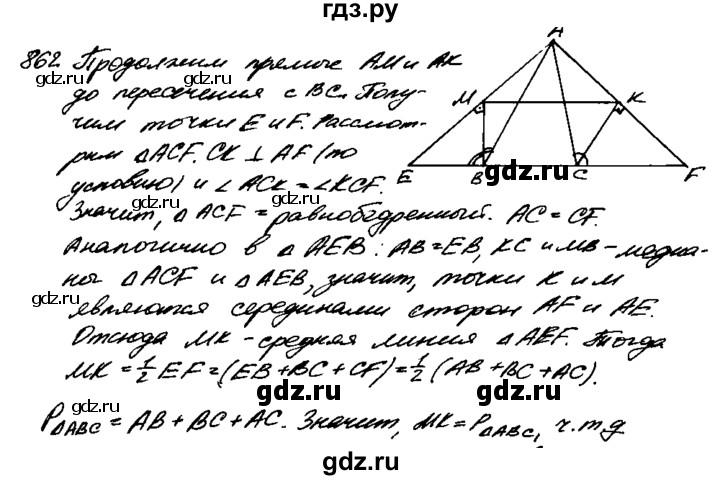 гдз.ру
862. Продолжим прямые AM и AK
до пересечения с BC. Полу-
чим точки E и F. Рассмот-
рим △ACF. CK ⊥ AF (по
условию) и ∠ACK = ∠KCF.
Значит, △ACF = равнобедренный. AC = CF.
Аналогично в △AEB: AB = EB, KC и MB - медиа-
ны △ACF и △AEB, значит, точки K и M
являются серединами сторон AF и AE.
Отсюда MK - средняя линия △AEF. Тогда
MK = 1/2 EF = (EB + BC + CF) = 1/2 (AB + BC + AC).
P△ABC = AB + BC + AC. Значит, MK = P△ABC, ч.т.д
A
M
K
E
B
C
F
gdz.ru
gdz.ru
gdz.ru
gdz.ru
gdz.ru
gdz.ru
gdz.ru
gdz.ru
gdz.ru
gdz.ru
gdz.ru
gdz.ru